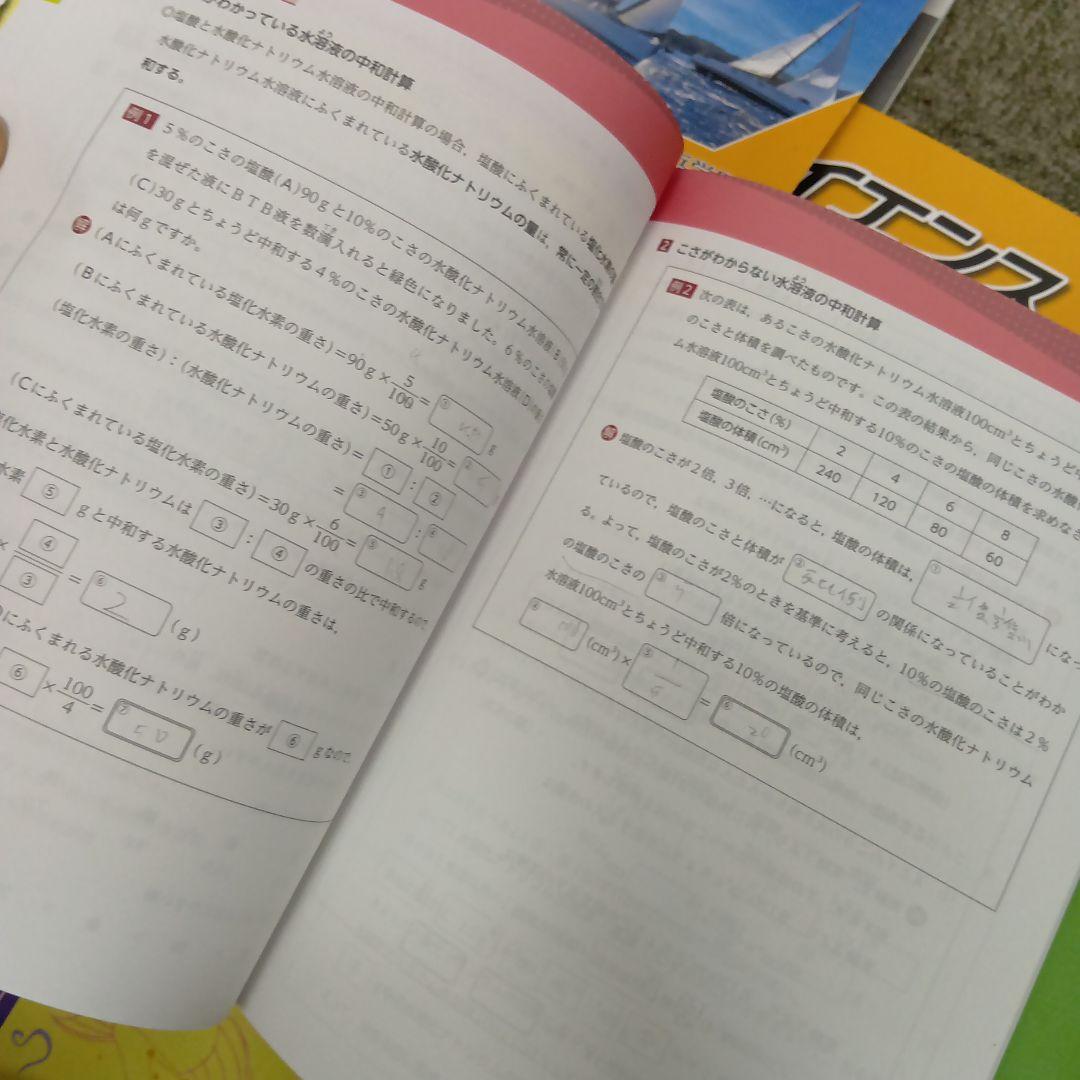 がわかっている水溶液の中和計算
◎塩酸と水酸化ナトリウム水溶液の中和計算の場合，塩酸にふくまれている
水酸化ナトリウム水溶液にふくまれている水酸化ナトリウムの重さの量は，常に一定の
和する。
例1 5％のこさの塩酸(A)90gと10％のこさの水酸化ナトリウム水溶液
を混ぜた液にBTB液を数滴入れると緑色になりました。6％のこさの
(C)30gとちょうど中和する4％のこさの水酸化ナトリウム水溶液(D)
は何gですか。
答 (Aにふくまれている塩化水素の重さ)=90g×5/100=① g
(Bにふくまれている水酸化ナトリウムの重さ)=50g×10/100=②
(塩化水素の重さ)：(水酸化ナトリウムの重さ)=①：②
=③ 9：④
(Cにふくまれている塩化水素の重さ)=30g×6/100=⑤ g
化水素と水酸化ナトリウムは③：④の重さの比で中和するので
水素⑤gと中和する水酸化ナトリウムの重さは，
×④/③=⑥ 2 (g)
にふくまれる水酸化ナトリウムの重さが⑥gなので
⑥×100/4=⑦ 50 (g)
2 こさがわからない水溶液の中和計算
例2 次の表は，あるこさの水酸化ナトリウム水溶液100cm³とちょうど
のこさと体積を調べたものです。この表の結果から，同じこさの水酸
ム水溶液100cm³とちょうど中和する10％のこさの塩酸の体積を求めなさ
塩酸のこさ(%) 2 4 6 8
塩酸の体積(cm³) 240 120 80 60
答 塩酸のこさが2倍，3倍，…になると，塩酸の体積は，① 1/2倍，1/3倍 になっ
ているので，塩酸のこさと体積が② の関係になっていることがわか
る。よって，塩酸のこさが2％のときを基準に考えると，10％の塩酸のこさは2％
の塩酸のこさの③ 倍になっているので，同じこさの水酸化ナトリウム
水溶液100cm³とちょうど中和する10％の塩酸の体積は，
④ (cm³)×⑤ =⑥ (cm³)
イエンス